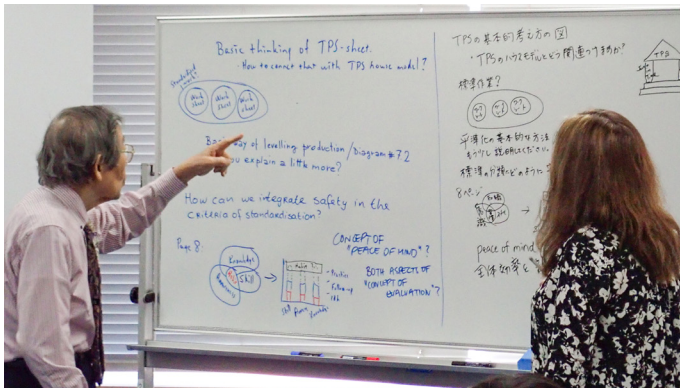 Basic thinking of TPS-sheet.
- How to connect that with TPS house model?
Standardized
Work sheet
Work sheet
Work sheet
way of levelling production / Diagram #72
you explain a little more?
How can we integrate safety in the
criteria of standardisation?
Page 8.
Knowledge
Skill
CONCEPT OF
"PEACE OF MIND"?
BOTH ASPECTS OF
"CONCEPT OF
EVALUATION"?
Follow-up
TPSの基本的考え方の図
・TPSのハウスモデルとどう関連づけますか?
TPS
標準作業?
平準化の基本的な方法
もう少し説明してください。
標準の分類にどのように
8ページ
peace of mind
全体効率と